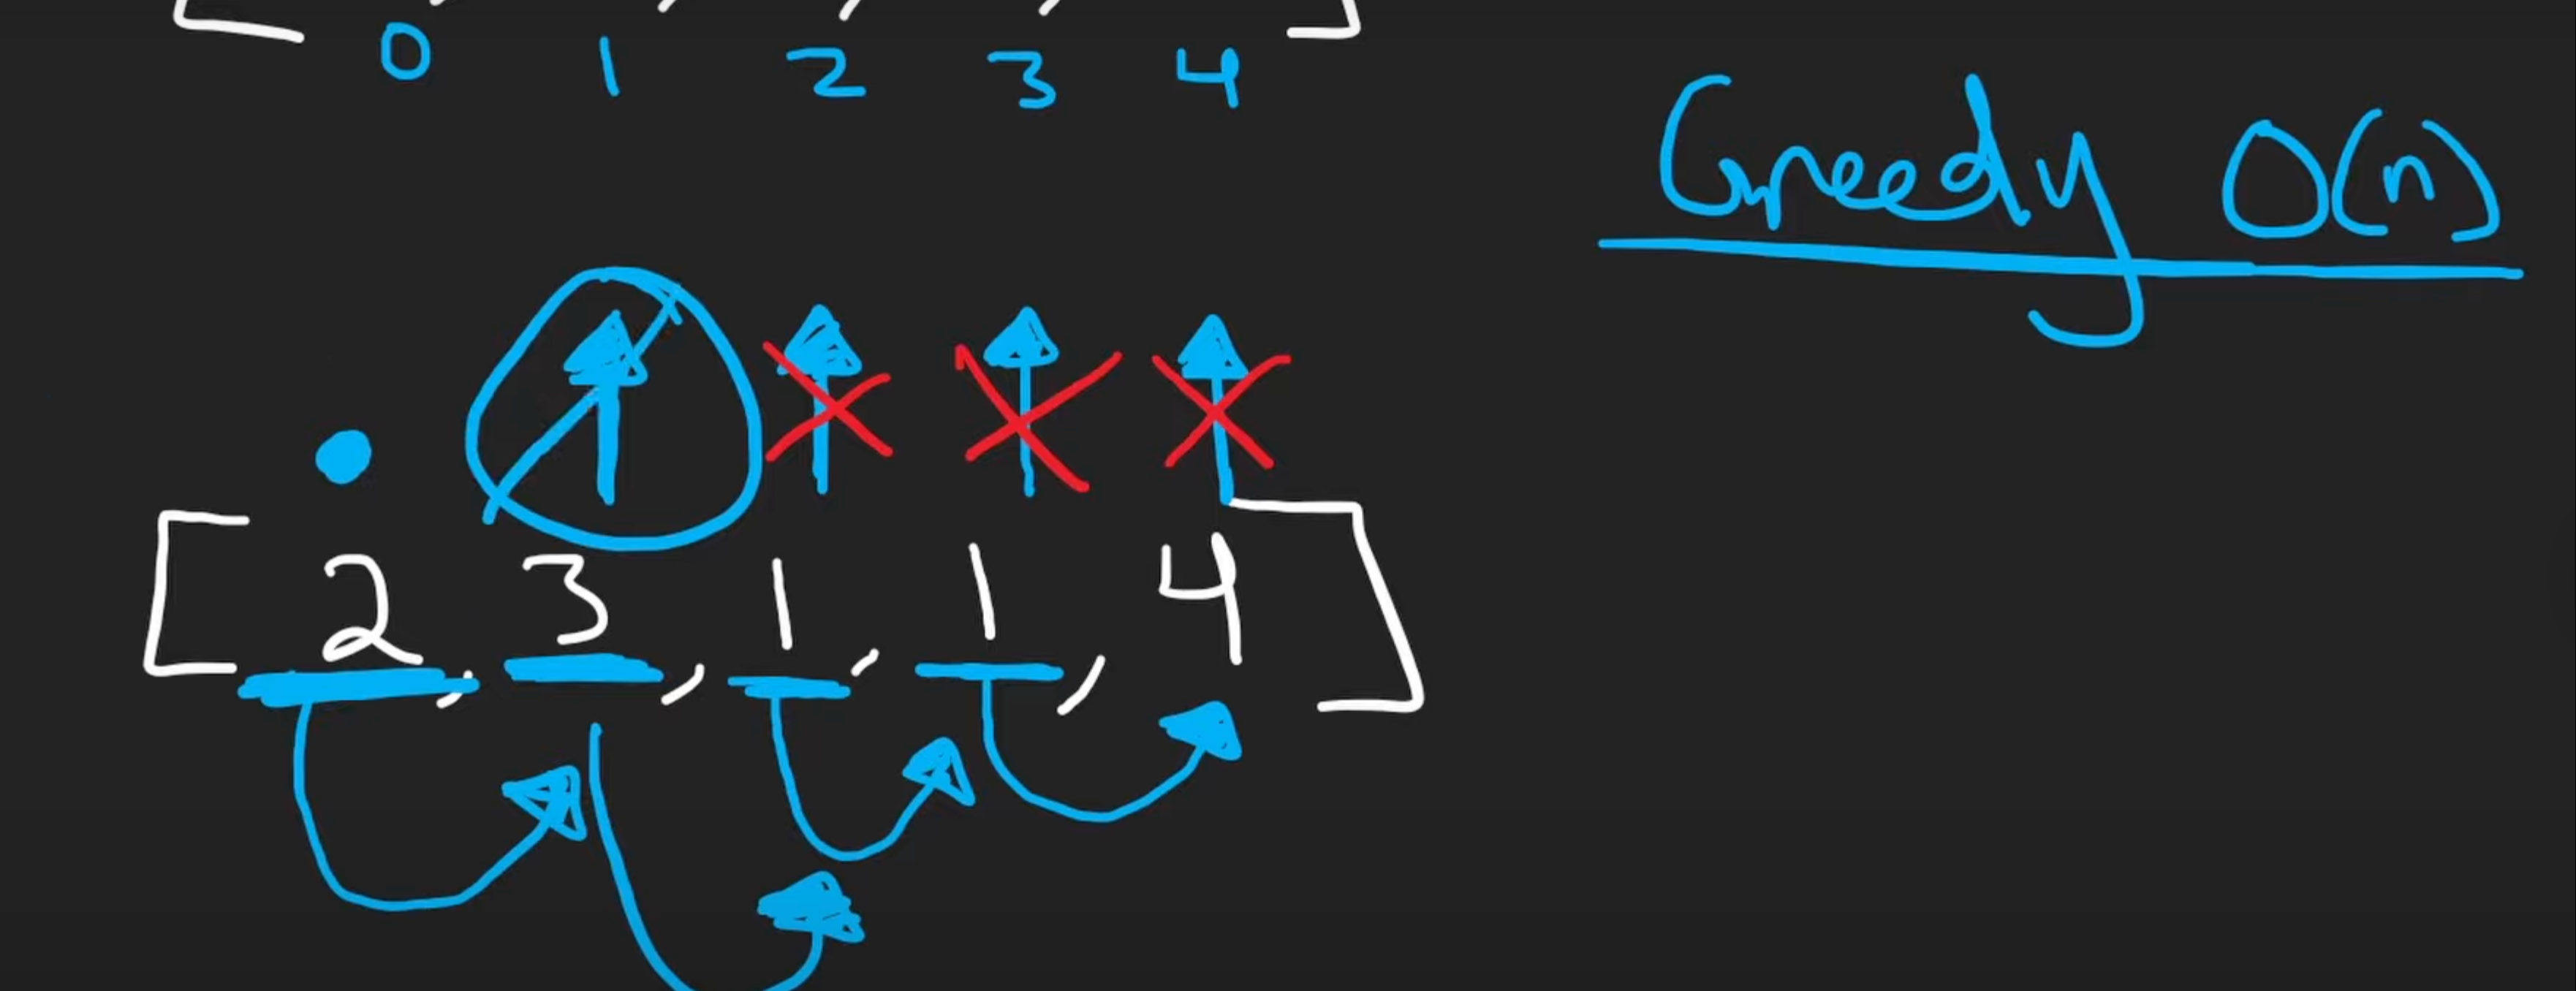 0 1 2 3 4
Greedy O(n)
[2, 3, 1, 1, 4]